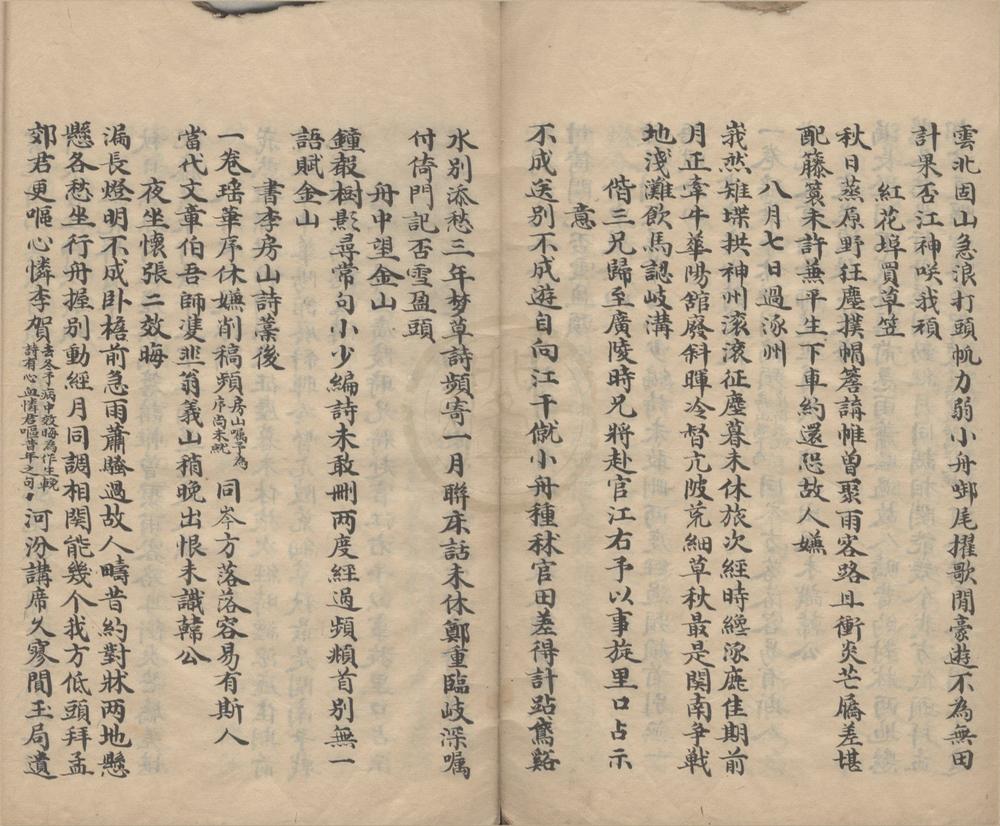 雲北固山急浪打頭帆力弱小舟啣尾擢歌閒豪遊不為無田
計果否江神咲我頑
紅花埠買草笠
秋日蒸原野狂塵撲帽簷講帷曾聚雨客路且衝炎芒屩差堪
配籐蓑未許兼平生下車約還恐故人嫌
八月七日過涿州
峩然雉堞拱神州滚滚征塵暮未休旅次經時纔涿鹿佳期前
月正牽牛華陽舘廢斜暉冷督亢陂荒細草秋最是関南争戰
地淺灘飲馬認岐溝
偕三兄歸至廣陵時兄將赴官江右予以事旋里口占示
意
不成送別不成遊自向江干僦小舟種秫官田差得計跕鳶谿
水別添愁三年梦草詩頻寄一月聨床話未休鄭重臨岐深嘱
付倚門記否雪盈頭
舟中望金山
鐘聲樹影尋常句小少編詩未敢刪两度經過頻頫首別無一
語賦金山
書李房山詩藁後
一卷瑶華序休嫌削稿頻房山嘱予為序尚未就同岑方落落容易有斯人
當代文章伯吾師溲韭翁義山稍晚出恨未識韓公
夜坐懷張二效晦
漏長燈明不成卧梧前急雨蕭騷過故人疇昔約對牀两地懸
懸各愁坐行舟握別動經月同調相関能幾个我方低頭拜孟
郊君更嘔心憐李賀去冬予病中效晦為作生輓詩有心血憐君嘔昔年之句河汾講席久寥間玉局遺